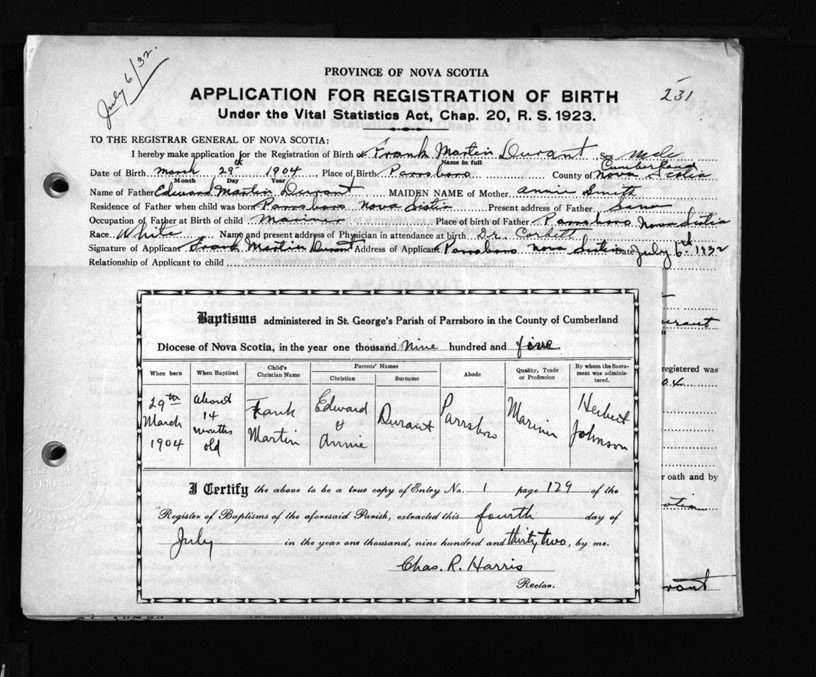 July 6/32.
PROVINCE OF NOVA SCOTIA
APPLICATION FOR REGISTRATION OF BIRTH
231
Under the Vital Statistics Act, Chap. 20, R. S. 1923.
TO THE REGISTRAR GENERAL OF NOVA SCOTIA:
I hereby make application for the Registration of Birth of Frank Martin Durant Sex Male
Name in full
Cumberland
Date of Birth March 29th 1904 Place of Birth Parrsboro County of Nova Scotia
Month Day Year
Name of Father Edward Martin Durant MAIDEN NAME of Mother Annie Smith
Residence of Father when child was born Parrsboro Nova Scotia Present address of Father
Occupation of Father at Birth of child Mariner Place of birth of Father Parrsboro Nova Scotia
Race White Name and present address of Physician in attendance at birth Dr. Corbett
Signature of Applicant Frank Martin Durant Address of Applicant Parrsboro Nova Scotia Date July 6th 1932
Relationship of Applicant to child
Baptisms administered in St. George's Parish of Parrsboro in the County of Cumberland
Diocese of Nova Scotia, in the year one thousand Nine hundred and five
When born When Baptised Child's Christian Name Parents' Names Christian Surname Abode Quality, Trade or Profession By whom the Sacrament was administered.
29th March 1904 About 14 months old Frank Martin Edward & Annie Durant Parrsboro Mariner Herbert Johnson
I Certify the above to be a true copy of Entry No. 1 page 129 of the
Register of Baptisms of the aforesaid Parish, extracted this fourth day of
July in the year one thousand, nine hundred and thirty two, by me.
Chas. R. Harris
Rector.
urant
registered was
r oath and by
rant